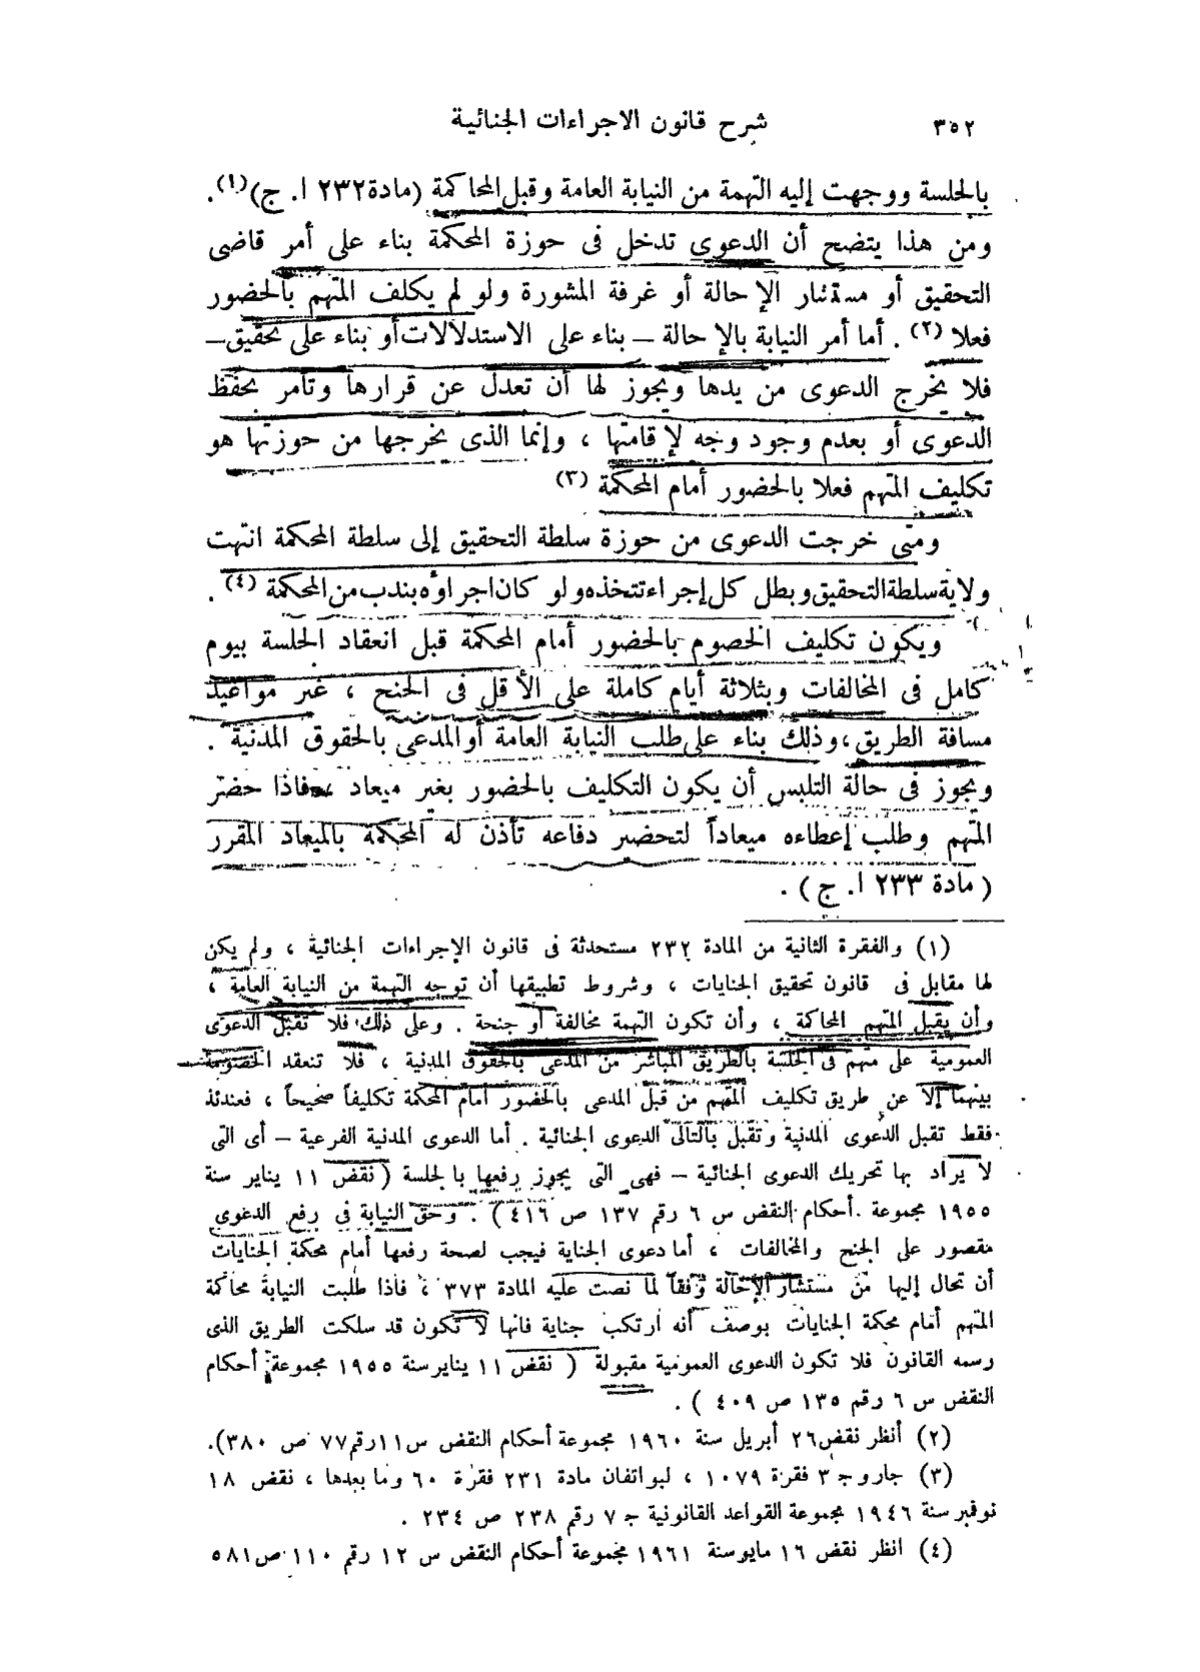 ٣٥٢ شرح قانون الاجراءات الجنائية
بالجلسة ووجهت إليه التهمة من النيابة العامة وقبل المحاكمة (مادة ٢٣٢ ا. ج)(١).
ومن هذا يتضح أن الدعوى تدخل فى حوزة المحكمة بناء على أمر قاضى
التحقيق أو مستشار الإحالة أو غرفة المشورة ولو لم يكلف المتهم بالحضور
فعلا (٢) . أما أمر النيابة بالإحالة – بناء على الاستدلالات أو بناء على تحقيق –
فلا يخرج الدعوى من يدها ويجوز لها أن تعدل عن قرارها وتأمر بحفظ
الدعوى أو بعدم وجود وجه لإقامتها ، وإنما الذى يخرجها من حوزتها هو
تكليف المتهم فعلا بالحضور أمام المحكمة (٣)
ومتى خرجت الدعوى من حوزة سلطة التحقيق إلى سلطة المحكمة انتهت
ولاية سلطة التحقيق وبطل كل إجراء تتخذه ولو كان اجراؤه بندب من المحكمة (٤) .
ويكون تكليف الخصوم بالحضور أمام المحكمة قبل انعقاد الجلسة بيوم
كامل فى المخالفات وبثلاثة أيام كاملة على الأقل فى الجنح ، غير مواعيد
مسافة الطريق ، وذلك بناء على طلب النيابة العامة أو المدعى بالحقوق المدنية .
ويجوز فى حالة التلبس أن يكون التكليف بالحضور بغير ميعاد ، فاذا حضر
المتهم وطلب إعطاءه ميعاداً لتحضير دفاعه تأذن له المحكمة بالميعاد المقرر
( مادة ٢٣٣ ا. ج ) .
(١) والفقرة الثانية من المادة ٢٣٢ مستحدثة فى قانون الإجراءات الجنائية ، ولم يكن
لها مقابل فى قانون تحقيق الجنايات ، وشروط تطبيقها أن توجه التهمة من النيابة العامة ،
وأن يقبل المتهم المحاكمة ، وأن تكون التهمة مخالفة أو جنحة . وعلى ذلك فلا تقبل الدعوى
العمومية على متهم فى الجلسة بالطريق المباشر من المدعى بالحقوق المدنية ، فلا تنعقد الخصومة
بينهما إلا عن طريق تكليف المتهم من قبل المدعى بالحضور أمام المحكمة تكليفاً صحيحاً ، فعندئذ
فقط تقبل الدعوى المدنية وتقبل بالتالى الدعوى الجنائية . أما الدعوى المدنية الفرعية – أى التى
لا يراد بها تحريك الدعوى الجنائية – فهى التى يجوز رفعها بالجلسة ( نقض ١١ يناير سنة
١٩٥٥ مجموعة أحكام النقض س ٦ رقم ١٣٧ ص ٤١٦ ) . وحق النيابة فى رفع الدعوى
مقصور على الجنح والمخالفات ، أما دعوى الجناية فيجب لصحة رفعها أمام محكمة الجنايات
أن تحال إليها من مستشار الإحالة وفقاً لما نصت عليه المادة ٣٧٣ ، فاذا طلبت النيابة محاكمة
المتهم أمام محكمة الجنايات بوصف أنه ارتكب جناية فانها لا تكون قد سلكت الطريق الذى
رسمه القانون فلا تكون الدعوى العمومية مقبولة ( نقض ١١ يناير سنة ١٩٥٥ مجموعة أحكام
النقض س ٦ رقم ١٣٥ ص ٤٠٩ ) .
(٢) أنظر نقض ٢٦ أبريل سنة ١٩٦٠ مجموعة أحكام النقض س ١١ رقم ٧٧ ص ٣٨٠).
(٣) جارو ج ٣ فقرة ١٠٧٩ ، لبواتفان مادة ٢٣١ فقرة ٦٠ وما بعدها ، نقض ١٨
نوفمبر سنة ١٩٤٦ مجموعة القواعد القانونية ج ٧ رقم ٢٣٨ ص ٢٣٤ .
(٤) انظر نقض ١٦ مايو سنة ١٩٦١ مجموعة أحكام النقض س ١٢ رقم ١١٠ ص ٥٨١